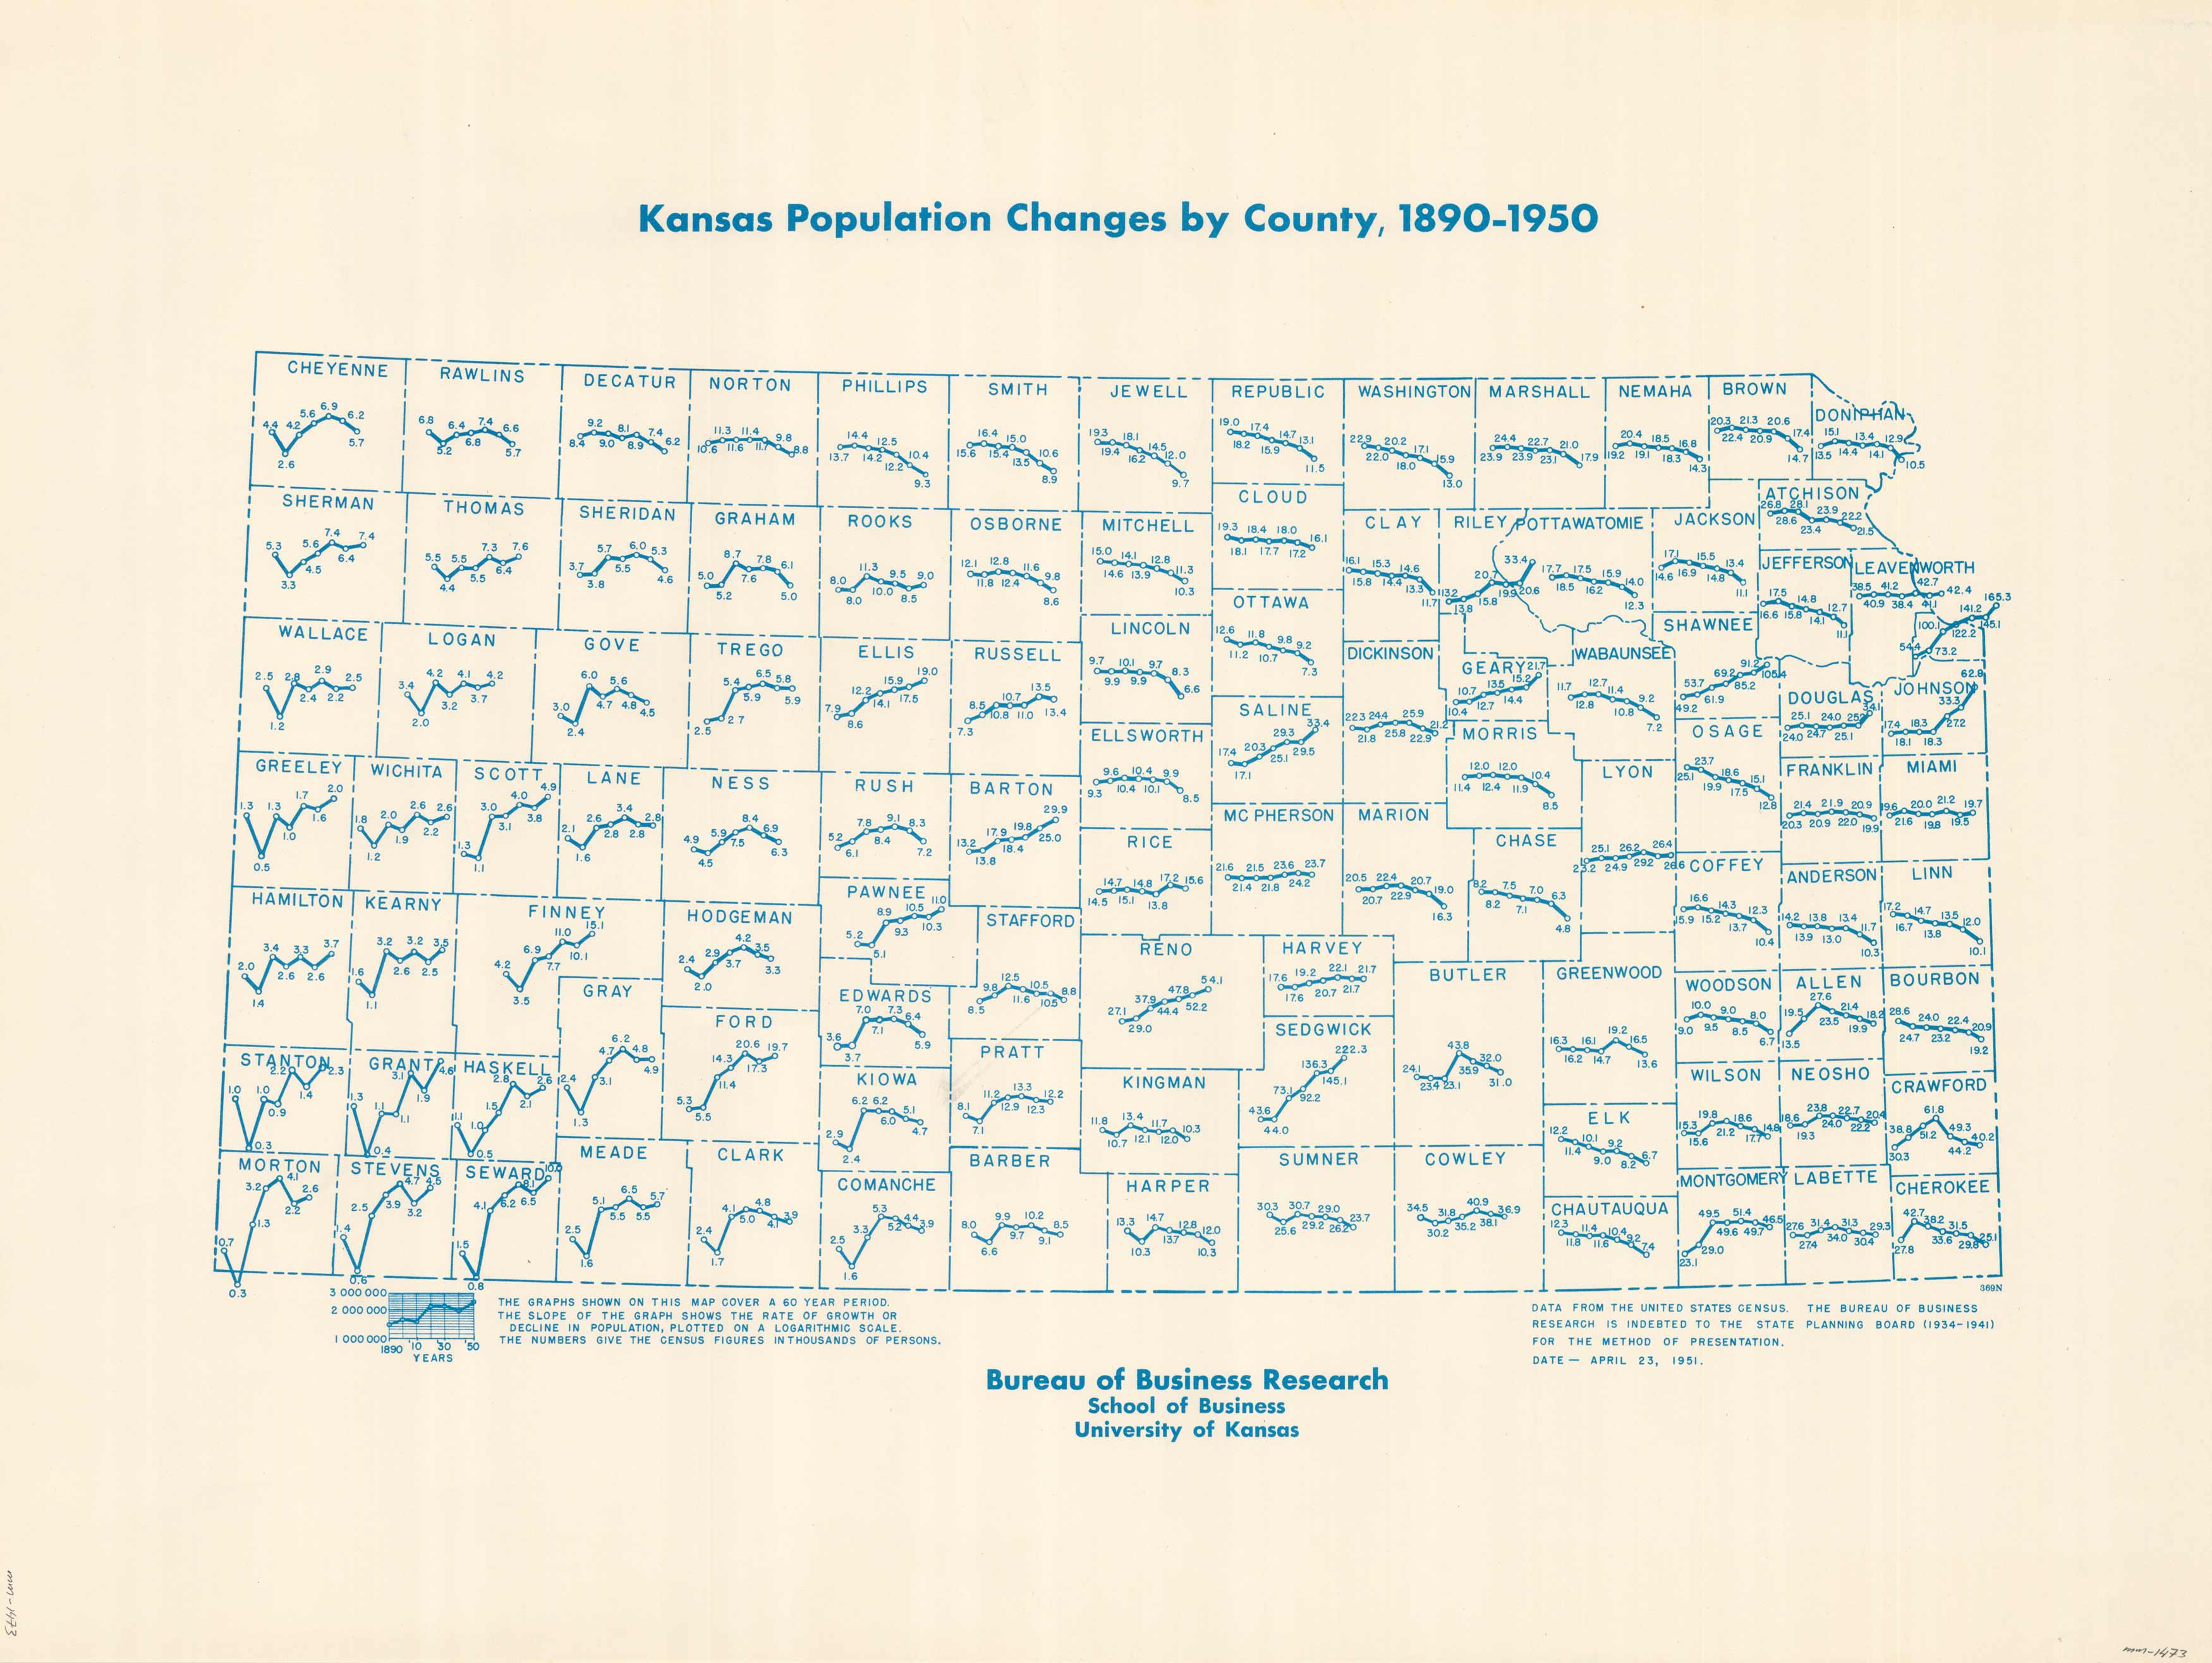 Kansas Population Changes by County, 1890-1950
CHEYENNE
4.4 4.2 5.6 6.9 6.2
2.6 5.7
RAWLINS
6.8 6.4 7.4 6.6
5.2 6.8 5.7
DECATUR
9.2 8.1 7.4
8.4 9.0 8.9 6.2
NORTON
11.3 11.4 9.8
10.6 11.6 11.7 8.8
PHILLIPS
14.4 12.5 10.4
13.7 14.2 12.2 9.3
SMITH
16.4 15.0 11.6 10.6
15.6 15.4 13.5 8.9
JEWELL
19.3 18.1 14.5 12.0
19.4 16.2 9.7
REPUBLIC
19.0 17.4 14.7 13.1
18.2 15.9 11.5
WASHINGTON
22.9 20.2 17.1 15.9
22.0 18.0 13.0
MARSHALL
24.4 22.7 21.0
23.9 23.9 23.1 17.9
NEMAHA
20.4 18.5 16.8
19.2 19.1 18.3 14.3
BROWN
20.3 21.3 20.6 17.4
22.4 20.9 14.7
DONIPHAN
15.1 13.4 12.9
13.5 14.4 14.1 10.5
SHERMAN
5.3 5.6 7.4 7.4
3.3 4.5 6.4
THOMAS
5.5 5.5 7.3 7.6
4.4 5.5 6.4
SHERIDAN
3.7 5.7 6.0 5.3
3.8 5.5 4.6
GRAHAM
5.0 8.7 7.8 6.1
5.2 7.6 5.0
ROOKS
8.0 11.3 9.5 9.0
8.0 10.0 8.5
OSBORNE
12.1 12.8 11.6 9.8
11.8 12.4 8.6
MITCHELL
15.0 14.1 12.8 11.3
14.6 13.9 10.3
CLOUD
19.3 18.4 18.0 16.1
18.1 17.7 17.2
CLAY
16.1 15.3 14.6
15.8 14.4 13.3 11.7
RILEY
20.7 33.4
13.2 13.8 15.8 19.9 20.6
POTTAWATOMIE
17.7 17.5 15.9 14.0
18.5 16.2 12.3
JACKSON
17.1 15.5 13.4
14.6 16.9 14.8 11.1
ATCHISON
26.8 28.1 23.9 22.2
28.6 23.4 21.5
JEFFERSON
17.5 14.8 12.7
16.6 15.8 14.1 11.1
LEAVENWORTH
38.5 41.2 42.7 42.4
40.9 38.4 41.1
100.1 141.2 165.3
54.4 73.2 122.2 145.1
WALLACE
2.5 2.8 2.9 2.5
1.2 2.4 2.2
LOGAN
3.4 4.2 4.1 4.2
2.0 3.2 3.7
GOVE
3.0 6.0 5.6
2.4 4.7 4.8 4.5
TREGO
5.4 6.5 5.8
2.5 2.7 5.9 5.9
ELLIS
7.9 12.2 15.9 19.0
8.6 14.1 17.5
RUSSELL
8.5 10.7 13.5
7.3 10.8 11.0 13.4
LINCOLN
9.7 10.1 9.7 8.3
9.9 9.9 6.6
OTTAWA
12.6 11.8 9.8 9.2
11.2 10.7 7.3
DICKINSON
22.3 24.4 25.9 21.2
21.8 25.8 22.9
GEARY
10.7 13.5 15.2 21.7
10.4 12.7 14.4
WABAUNSEE
11.7 12.7 11.4 9.2
12.8 10.8 7.2
SHAWNEE
53.7 69.2 91.2
49.2 61.9 85.2 105.4
DOUGLAS
25.1 24.0 25.2 34.1
24.0 24.7 25.1
JOHNSON
17.4 18.3 33.3 62.8
18.1 18.3 27.2
GREELEY
1.3 1.3 1.7 2.0
0.5 1.0 1.6
WICHITA
1.8 2.0 2.6 2.6
1.2 1.9 2.2
SCOTT
1.3 3.0 4.0 4.9
1.1 3.1 3.8
LANE
2.1 2.6 3.4 2.8
1.6 2.8 2.8
NESS
4.9 5.9 8.4 6.9
4.5 7.5 6.3
RUSH
5.2 7.8 9.1 8.3
6.1 8.4 7.2
BARTON
13.2 17.9 19.8 29.9
13.8 18.4 25.0
ELLSWORTH
9.6 10.4 9.9
9.3 10.4 10.1 8.5
SALINE
17.4 20.3 29.3 33.4
17.1 25.1 29.5
MORRIS
12.0 12.0 10.4
11.4 12.4 11.9 8.5
LYON
25.1 26.2 26.4
23.2 24.9 29.2 26.6
OSAGE
23.7 18.6 15.1
25.1 19.9 17.5 12.8
FRANKLIN
21.4 21.9 20.9
20.3 20.9 22.0 19.9
MIAMI
19.6 20.0 21.2 19.7
21.6 19.8 19.5
RICE
14.7 14.8 17.2 15.6
14.5 15.1 13.8
MC PHERSON
21.6 21.5 23.6 23.7
21.4 21.8 24.2
MARION
20.5 22.4 20.7 19.0
20.7 22.9 16.3
CHASE
8.2 7.5 7.0 6.3
8.2 7.1 4.8
COFFEY
16.6 14.3 12.3
15.9 15.2 13.7 10.4
ANDERSON
14.2 13.8 13.4 11.7
13.9 13.0 10.3
LINN
17.2 14.7 13.5 12.0
16.7 13.8 10.1
HAMILTON
2.0 3.4 3.3 3.7
1.4 2.6 2.6
KEARNY
1.6 3.2 3.2 3.5
1.1 2.6 2.5
FINNEY
4.2 6.9 11.0 15.1
3.5 7.7 10.1
HODGEMAN
2.4 2.9 4.2 3.5
2.0 3.7 3.3
PAWNEE
5.2 8.9 10.5 11.0
5.1 9.3 10.3
STAFFORD
9.8 12.5 10.5 8.8
8.5 11.6 10.5
RENO
27.1 37.9 47.8 54.1
29.0 44.4 52.2
HARVEY
17.6 19.2 22.1 21.7
17.6 20.7 21.7
BUTLER
24.1 43.8 32.0
23.4 23.1 35.9 31.0
GREENWOOD
16.3 16.1 19.2 16.5
16.2 14.7 13.6
WOODSON
10.0 9.0 8.0
9.0 9.5 8.5 6.7
ALLEN
19.5 27.6 21.4 18.2
13.5 23.5 19.9
BOURBON
28.6 24.0 22.4 20.9
24.7 23.2 19.2
GRAY
2.4 4.7 6.2 4.8
1.3 3.1 4.9
FORD
5.3 14.3 20.6 19.7
5.5 11.4 17.3
EDWARDS
3.6 7.0 7.3 6.4
3.7 7.1 5.9
SEDGWICK
43.6 73.1 136.3 222.3
44.0 92.2 145.1
STANTON
1.0 1.0 2.2 2.3
0.3 0.9 1.4
GRANT
1.3 1.1 3.1 4.6
0.4 1.1 1.9
HASKELL
1.1 1.0 1.5 2.8 2.6
0.5 2.1
KIOWA
2.9 6.2 6.2 5.1
2.4 6.0 4.7
PRATT
8.1 11.2 13.3 12.2
7.1 12.9 12.3
KINGMAN
11.8 13.4 11.7 10.3
10.7 12.1 12.0
ELK
12.2 10.1 9.2 6.7
11.4 9.0 8.2
WILSON
15.3 19.8 18.6 14.8
15.6 21.2 17.7
NEOSHO
18.6 23.8 22.7 20.4
19.3 24.0 22.2
CRAWFORD
38.8 61.8 49.3 40.2
30.3 51.2 44.2
MORTON
0.7 3.2 4.1 2.6
0.3 1.3 2.2
STEVENS
1.4 2.5 4.7 4.5
0.6 3.9 3.2
SEWARD
1.5 4.1 8.1 10.0
0.8 6.2 6.5
MEADE
2.5 5.1 6.5 5.7
1.6 5.5 5.5
CLARK
2.4 4.1 4.8 3.9
1.7 5.0 4.1
COMANCHE
2.5 3.3 5.3 4.4 3.9
1.6 5.2
BARBER
8.0 9.9 10.2 8.5
6.6 9.7 9.1
HARPER
13.3 14.7 12.8 12.0
10.3 13.7 10.3
SUMNER
30.3 30.7 29.0 23.7
25.6 29.2 26.2
COWLEY
34.5 31.8 40.9 36.9
30.2 35.2 38.1
CHAUTAUQUA
12.3 11.4 10.4 9.2 7.4
11.8 11.6
MONTGOMERY
49.5 51.4 46.5
23.1 29.0 49.6 49.7
LABETTE
27.6 31.4 31.3 29.3
27.4 34.0 30.4
CHEROKEE
42.7 38.2 31.5 25.1
27.8 33.6 29.8
369N
3 000 000
2 000 000
1 000 000
1890 '10 '30 '50
YEARS
THE GRAPHS SHOWN ON THIS MAP COVER A 60 YEAR PERIOD.
THE SLOPE OF THE GRAPH SHOWS THE RATE OF GROWTH OR
DECLINE IN POPULATION, PLOTTED ON A LOGARITHMIC SCALE.
THE NUMBERS GIVE THE CENSUS FIGURES IN THOUSANDS OF PERSONS.
DATA FROM THE UNITED STATES CENSUS. THE BUREAU OF BUSINESS
RESEARCH IS INDEBTED TO THE STATE PLANNING BOARD (1934-1941)
FOR THE METHOD OF PRESENTATION.
DATE — APRIL 23, 1951.
Bureau of Business Research
School of Business
University of Kansas
mm-1473
mm-1473